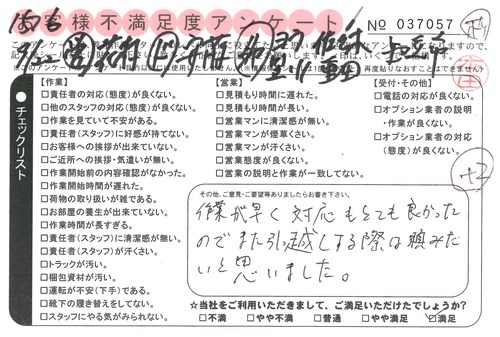 お客様不満足度アンケート
No 037057
チェックリスト
【作業】
□責任者の対応(態度)が良くない。
□他のスタッフの対応(態度)が良くない。
□作業を見ていて不安がある。
□責任者(スタッフ)に好感が持てない。
□お客様への挨拶が出来ていない。
□ご近所への挨拶・気遣いが無い。
□作業開始前の内容確認がなかった。
□作業開始時間が遅れた。
□荷物の取り扱いが雑である。
□お部屋の養生が出来ていない。
□作業時間が長すぎる。
□責任者(スタッフ)に清潔感が無い。
□責任者(スタッフ)が汗くさい。
□トラックが汚い。
□梱包資材が汚い。
□運転が不安(下手)である。
□靴下の履き替えをしてない。
□スタッフにやる気がみられない。
【営業】
□見積もり時間に遅れた。
□見積もり時間が長い。
□営業マンに清潔感が無い。
□営業マンが煙草くさい。
□営業マンが汗くさい。
□営業態度が良くない。
□営業の説明と作業が一致してない。
【受付・その他】
□電話の対応が良くない。
□オプション業者の説明
・作業が良くない。
□オプション業者の対応
(態度)が良くない。
+2
その他、ご意見・ご要望等ありましたらお書き下さい。
作業が早く対応もとても良かった
のでまた引越しする際は頼みた
いと思いました。
☆当社をご利用いただきまして、ご満足いただけたでしょうか?
□不満 □やや不満 □普通 □やや満足 ☑満足